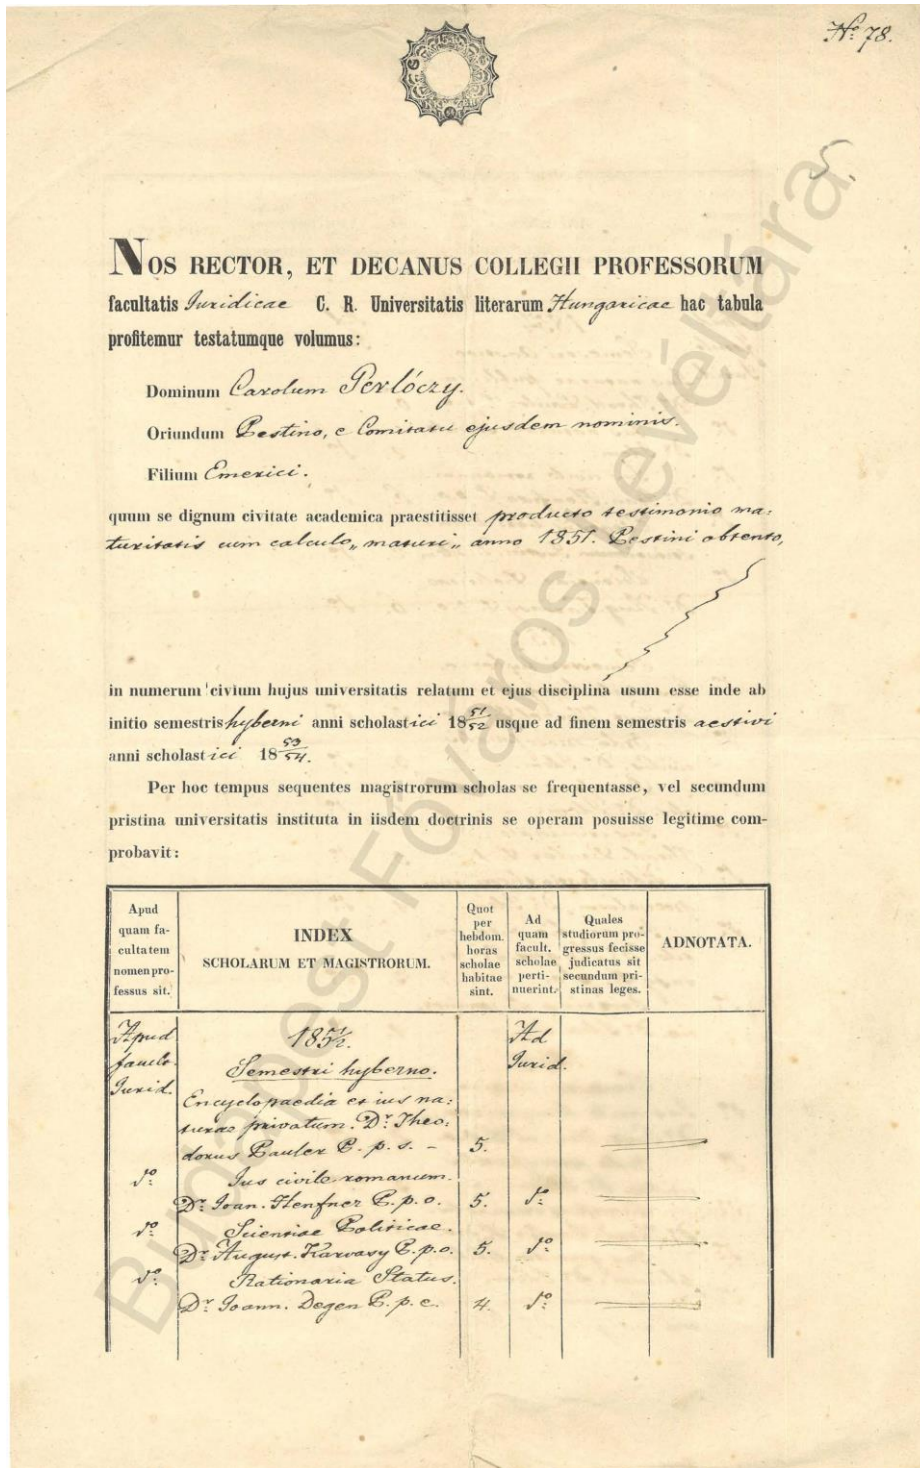 No 78.
5.
NOS RECTOR, ET DECANUS COLLEGII PROFESSORUM
facultatis Juridicae C. R. Universitatis literarum Hungaricae hac tabula
profitemur testatumque volumus:
Dominum Carolum Perlóczy.
Oriundum Pestino, e Comitatu ejusdem nominis.
Filium Emerici.
quum se dignum civitate academica praestitisset producto testimonio ma-
turitatis cum calculo „maturi„ anno 1851. Pestini obtento,
in numerum civium hujus universitatis relatum et ejus disciplina usum esse inde ab
initio semestris hyberni anni scholastici 18 51/52 usque ad finem semestris aestivi
anni scholastici 18 53/54.
Per hoc tempus sequentes magistrorum scholas se frequentasse, vel secundum
pristina universitatis instituta in iisdem doctrinis se operam posuisse legitime com-
probavit:
Apud
quam fa-
cultatem
nomen pro-
fessus sit.
INDEX
SCHOLARUM ET MAGISTRORUM.
Quot
per
hebdom.
horas
scholae
habitae
sint.
Ad
quam
facult.
scholae
perti-
nuerint.
Quales
studiorum pro-
gressus fecisse
judicatus sit
secundum pri-
stinas leges.
ADNOTATA.
Apud 185 1/2. Ad
facult. Semestri hyberno. Jurid.
Jurid. Encyclopaedia et ius na-
turae privatum. Dr. Theo-
dorus Pauler P. p. s. - 5.
do Jus civile romanum.
Dr. Joan. Henfner P. p. o. 5. do
do Scientiae Politicae.
Dr. August. Karvasy P. p. o. 5. do
do Rationaria Status.
Dr. Joann. Degen P. p. e. 4. do
Budapest Főváros Levéltára